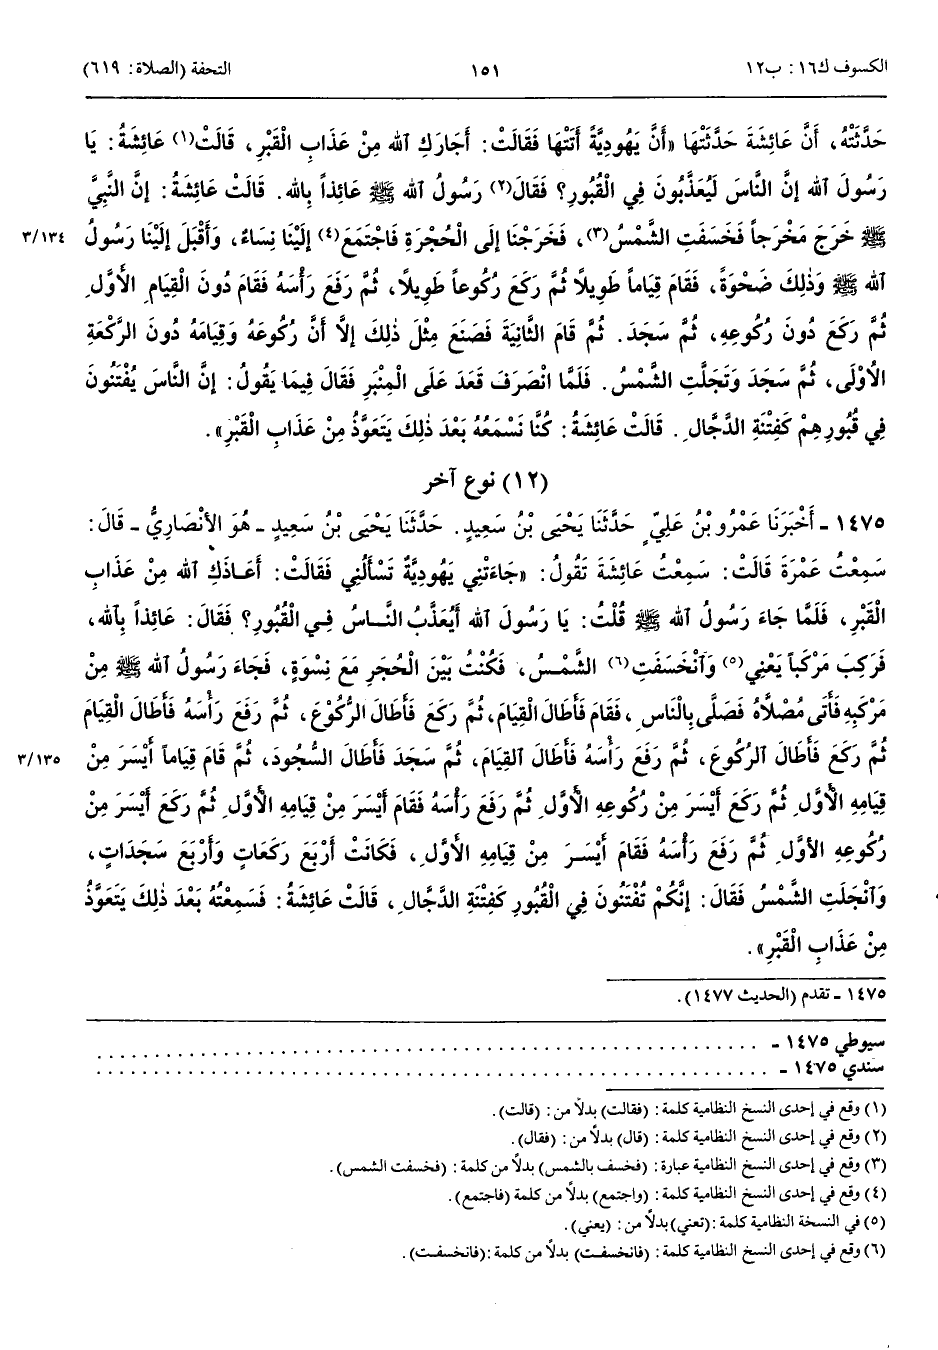 الكسوف ك١٦: ب١٢ ١٥١ التحفة (الصلاة: ٦١٩)
حَدَّثَتْهُ، أَنَّ عَائِشَةَ حَدَّثَتْهَا «أَنَّ يَهُودِيَّةً أَتَتْهَا فَقَالَتْ: أَجَارَكِ الله مِنْ عَذَابِ الْقَبْرِ، قَالَتْ(١) عَائِشَةُ: يَا
رَسُولَ الله إِنَّ النَّاسَ لَيُعَذَّبُونَ فِي الْقُبُورِ؟ فَقَالَ(٢) رَسُولُ الله ﷺ عَائِذاً بِالله. قَالَتْ عَائِشَةُ: إِنَّ النَّبِيَّ
ﷺ خَرَجَ مَخْرَجاً فَخَسَفَتِ الشَّمْسُ(٣)، فَخَرَجْنَا إِلَى الْحُجْرَةِ فَاجْتَمَعَ(٤) إِلَيْنَا نِسَاءٌ، وَأَقْبَلَ إِلَيْنَا رَسُولُ ٣/١٣٤
الله ﷺ وَذٰلِكَ ضَحْوَةً، فَقَامَ قِيَاماً طَوِيلاً ثُمَّ رَكَعَ رُكُوعاً طَوِيلاً، ثُمَّ رَفَعَ رَأْسَهُ فَقَامَ دُونَ الْقِيَامِ الْأَوَّلِ
ثُمَّ رَكَعَ دُونَ رُكُوعِهِ، ثُمَّ سَجَدَ. ثُمَّ قَامَ الثَّانِيَةَ فَصَنَعَ مِثْلَ ذٰلِكَ إِلَّا أَنَّ رُكُوعَهُ وَقِيَامَهُ دُونَ الرَّكْعَةِ
الْأُوْلَى، ثُمَّ سَجَدَ وَتَجَلَّتِ الشَّمْسُ. فَلَمَّا انْصَرَفَ قَعَدَ عَلَى الْمِنْبَرِ فَقَالَ فِيمَا يَقُولُ: إِنَّ النَّاسَ يُفْتَنُونَ
فِي قُبُورِهِمْ كَفِتْنَةِ الدَّجَّالِ. قَالَتْ عَائِشَةُ: كُنَّا نَسْمَعُهُ بَعْدَ ذٰلِكَ يَتَعَوَّذُ مِنْ عَذَابِ الْقَبْرِ».
(١٢) نوع آخر
١٤٧٥ - أَخْبَرَنَا عَمْرُو بْنُ عَلِيٍّ حَدَّثَنَا يَحْيَى بْنُ سَعِيدٍ. حَدَّثَنَا يَحْيَى بْنُ سَعِيدٍ - هُوَ الأَنْصَارِيُّ - قَالَ:
سَمِعْتُ عَمْرَةَ قَالَتْ: سَمِعْتُ عَائِشَةَ تَقُولُ: «جَاءَتْنِي يَهُودِيَّةٌ تَسْأَلُنِي فَقَالَتْ: أَعَاذَكِ الله مِنْ عَذَابِ
الْقَبْرِ، فَلَمَّا جَاءَ رَسُولُ الله ﷺ قُلْتُ: يَا رَسُولَ الله أَيُعَذَّبُ النَّاسُ فِي الْقُبُورِ؟ فَقَالَ: عَائِذاً بِاللهِ،
فَرَكِبَ مَرْكَباً يَعْنِي(٥) وَانْخَسَفَتِ(٦) الشَّمْسُ، فَكُنْتُ بَيْنَ الْحُجَرِ مَعَ نِسْوَةٍ، فَجَاءَ رَسُولُ الله ﷺ مِنْ
مَرْكَبِهِ فَأَتَى مُصْلَّاهُ فَصَلَّى بِالنَّاسِ، فَقَامَ فَأَطَالَ الْقِيَامَ، ثُمَّ رَكَعَ فَأَطَالَ الرُّكُوْعَ، ثُمَّ رَفَعَ رَأْسَهُ فَأَطَالَ الْقِيَامَ
ثُمَّ رَكَعَ فَأَطَالَ الرُّكُوعَ، ثُمَّ رَفَعَ رَأْسَهُ فَأَطَالَ الْقِيَامَ، ثُمَّ سَجَدَ فَأَطَالَ السُّجُودَ، ثُمَّ قَامَ قِيَاماً أَيْسَرَ مِنْ ٣/١٣٥
قِيَامِهِ الْأَوَّلِ ثُمَّ رَكَعَ أَيْسَرَ مِنْ رُكُوعِهِ الْأَوَّلِ ثُمَّ رَفَعَ رَأْسَهُ فَقَامَ أَيْسَرَ مِنْ قِيَامِهِ الْأَوَّلِ ثُمَّ رَكَعَ أَيْسَرَ مِنْ
رُكُوعِهِ الأَوَّلِ ثُمَّ رَفَعَ رَأْسَهُ فَقَامَ أَيْسَرَ مِنْ قِيَامِهِ الْأَوَّلِ، فَكَانَتْ أَرْبَعَ رَكَعَاتٍ وَأَرْبَعَ سَجَدَاتٍ،
وَانْجَلَتِ الشَّمْسُ فَقَالَ: إِنَّكُمْ تُفْتَنُونَ فِي الْقُبُورِ كَفِتْنَةِ الدَّجَّالِ، قَالَتْ عَائِشَةُ: فَسَمِعْتُهُ بَعْدَ ذٰلِكَ يَتَعَوَّذُ
مِنْ عَذَابِ الْقَبْرِ».
١٤٧٥ - تقدم (الحديث ١٤٧٧).
سيوطي ١٤٧٥ - ..........
سندي ١٤٧٥ - ..........
(١) وقع في إحدى النسخ النظامية كلمة: (فقالت) بدلاً من: (قالت).
(٢) وقع في إحدى النسخ النظامية كلمة: (قال) بدلاً من: (فقال).
(٣) وقع في إحدى النسخ النظامية عبارة: (فخسف بالشمس) بدلاً من كلمة: (فخسفت الشمس).
(٤) وقع في إحدى النسخ النظامية كلمة: (واجتمع) بدلاً من كلمة (فاجتمع).
(٥) في النسخة النظامية كلمة: (تعني) بدلاً من: (يعني).
(٦) وقع في إحدى النسخ النظامية كلمة: (فانخسفت) بدلاً من كلمة: (فانخسفت).